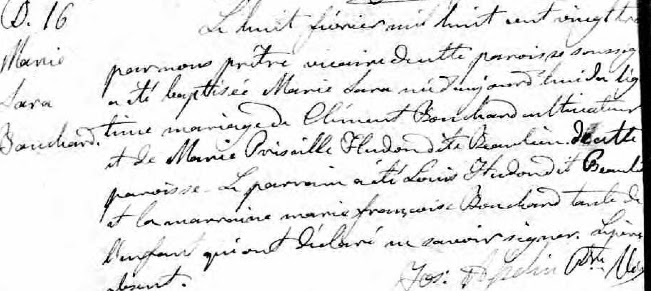 B. 16
Marie
Sara
Bouchard.
Le huit février mil huit cent vingt
par nous prêtre vicaire de cette paroisse soussig
a été baptisée Marie Sara née d'aujourd'hui du lég
time mariage de Clément Bouchard cultivateur
et de Marie Priscille Hudon dite Beaulieu de cette
paroisse. Le parrain a été Louis Hudon dit Beauli
et la marraine marie françoise Bouchard tante de
l'enfant qui ont déclaré ne savoir signer. Le père
absent.
Jos. Ptre